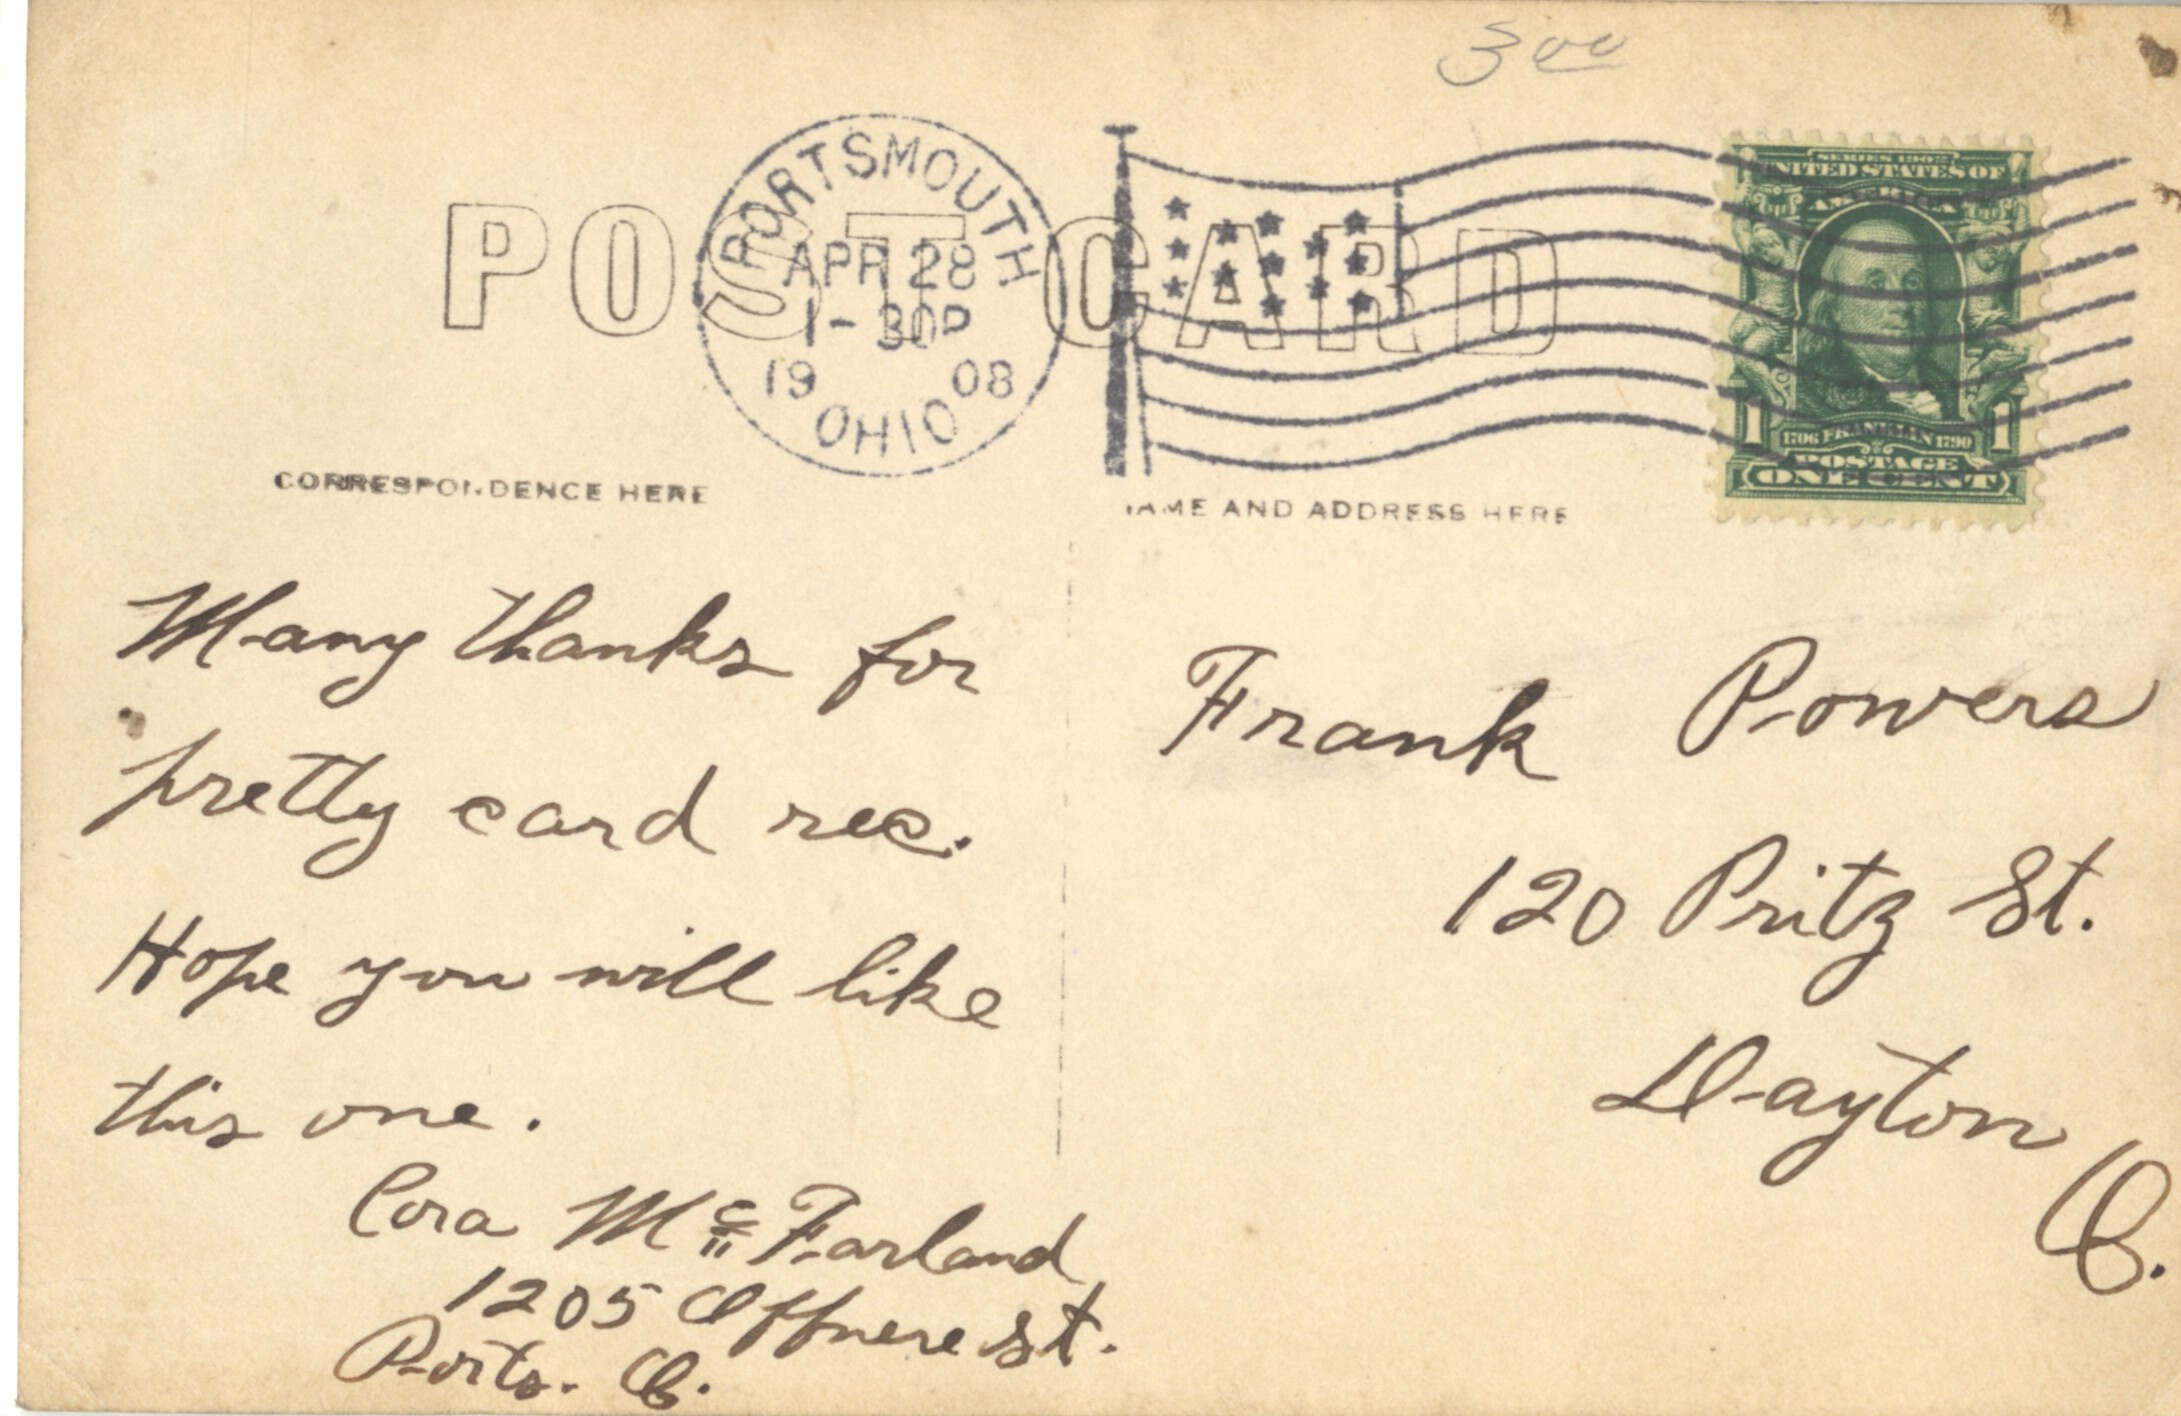 3 00
POST CARD
PORTSMOUTH
APR 28
1-30P
19 08
OHIO
SERIES 1902
UNITED STATES OF
AMERICA
1706 FRANKLIN 1790
1 POSTAGE 1
ONE CENT
CORRESPONDENCE HERE
NAME AND ADDRESS HERE
Many thanks for
pretty card rec.
Hope you will like
this one.
Cora Mc Farland
1205 Offnere St.
Ports. O.
Frank Powers
120 Pritz St.
Dayton
O.